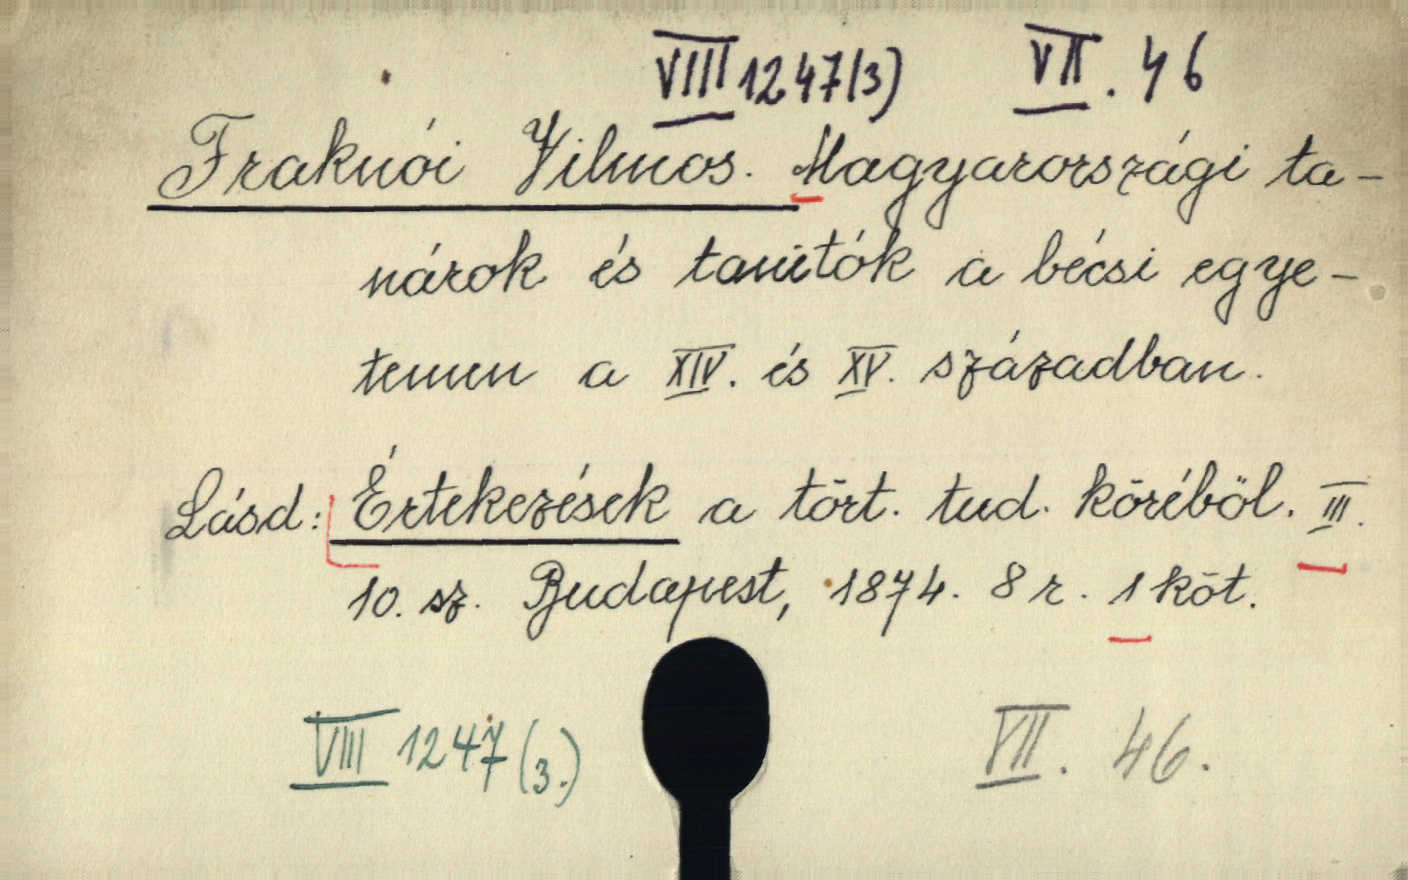 VIII 1247(3) VII. 46
Fraknói Vilmos. Magyarországi ta-
nárok és tanitók a bécsi egye-
temen a XIV. és XV. században.
Lásd: Értekezések a tört. tud. köréböl. III.
10. sz. Budapest, 1874. 8 r. 1 köt.
VIII 1247 (3.) VII. 46.